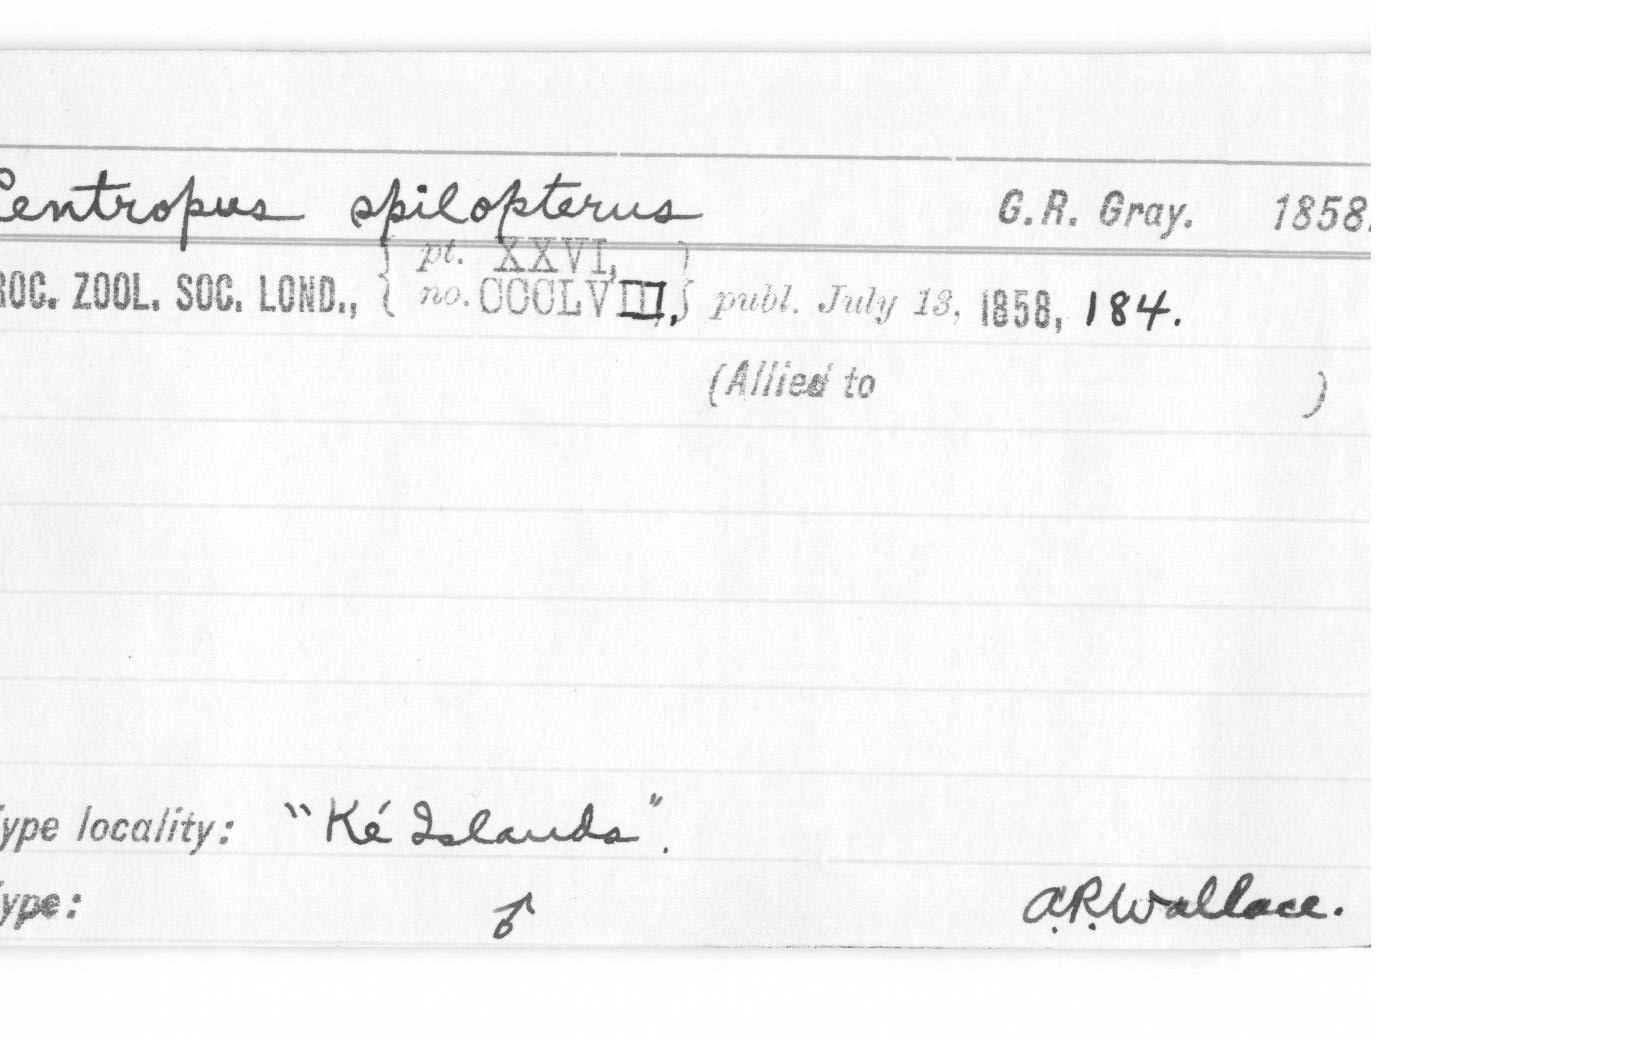 Centropus spilopterus G.R. Gray. 1858.
ROC. ZOOL. SOC. LOND., { pt. XXVI, no. CCCLVIII, } publ. July 13, 1858, 184.
(Allied to )
ype locality: "Ké Islands".
ype: ♂ A.R. Wallace.